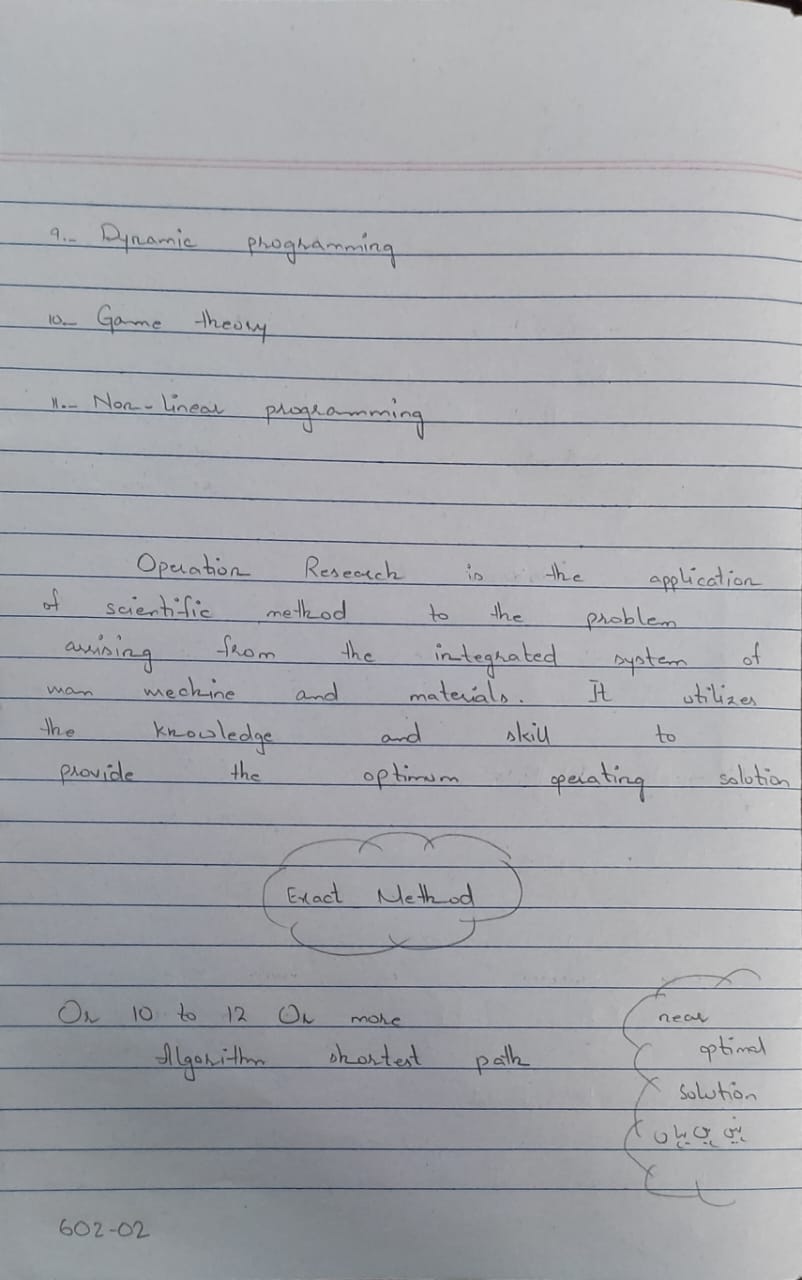 9.- Dynamic programming
10- Game theory
11.- Non-linear programming
Operation Research is the application
of scientific method to the problem
arrising from the integrated system of
man mechine and materials. It utilizes
the knowledge and skill to
provide the optimum operating solution
Exact Method
Or 10 to 12 Or more
Algorithm shortest path
near
optimal
solution
602-02